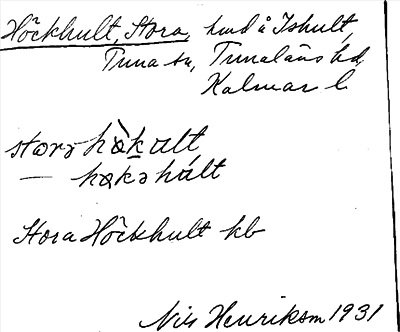 Höckhult, Stora, hmd å Ishult,
Tuna sn, Tunaläns hd,
Kalmar l.
storə hø̀kɑlt
— høkəhúlt
Stora Höckhult kb
Nils Henrikson 1931